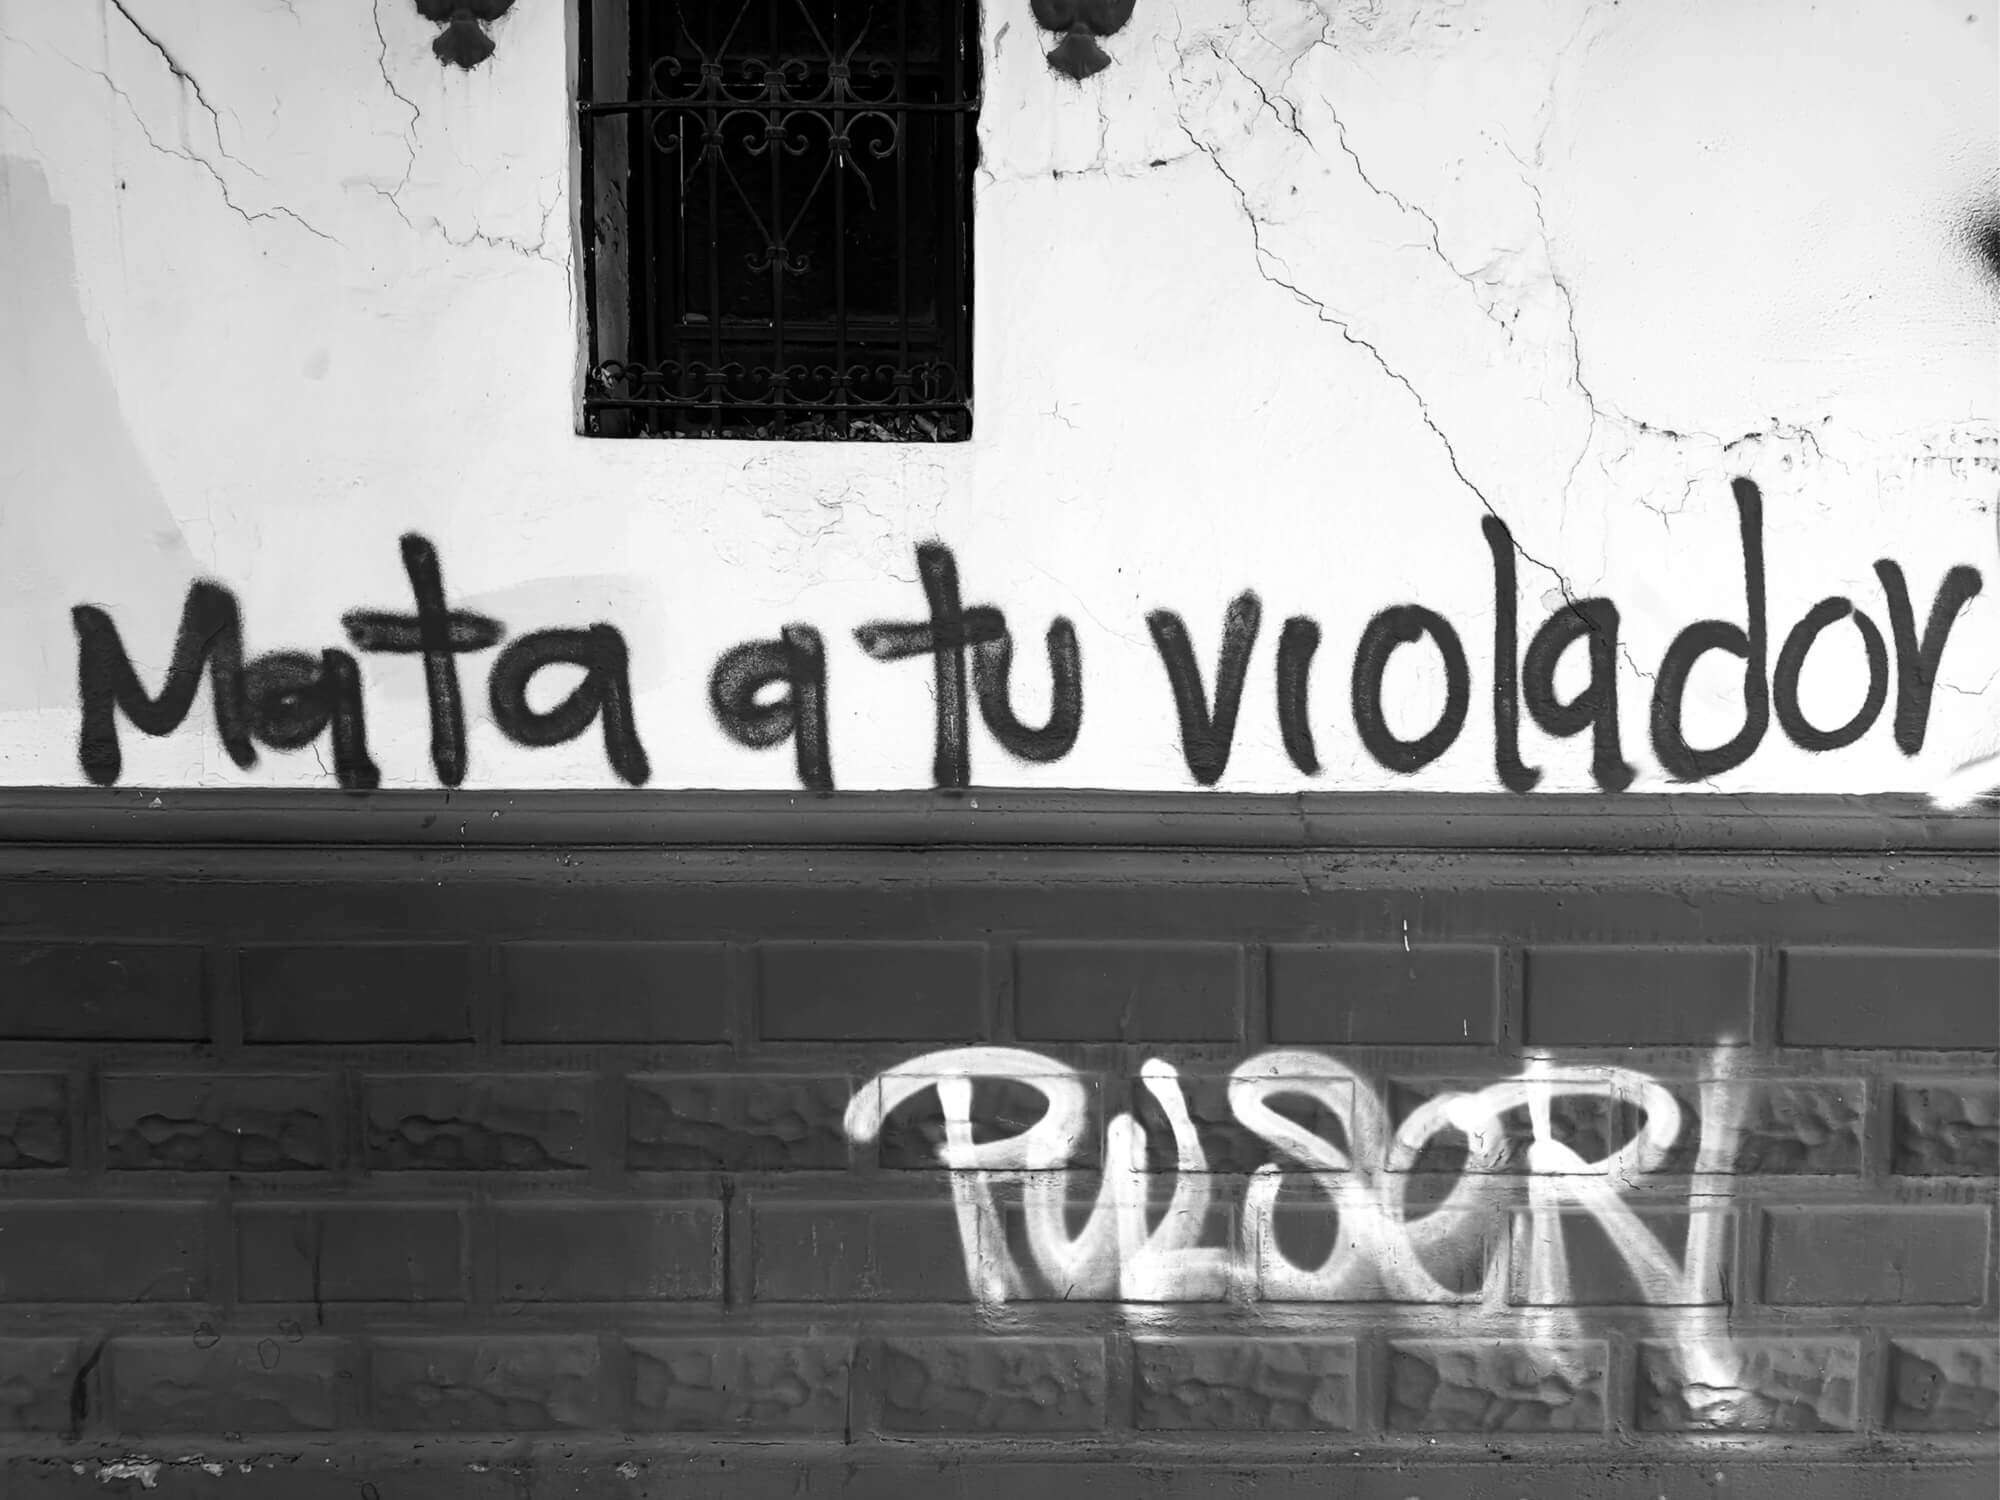 Mata a tu violador
PULSER